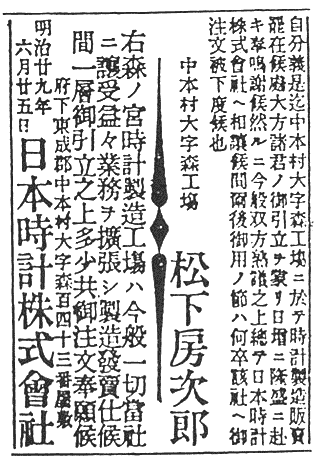 自分義是迄中本村大字森工塲ニ於テ時計製造販賣
罷在候處大方諸君ノ御引立ヲ蒙リ日増ニ隆盛ニ赴
キ奉鳴謝候然ルニ今般双方熟議之上總テ日本時計
株式會社ヘ相讓候間爾後御用ノ節ハ何卒該社ヘ御
注文被下度候也
中本村大字森工塲
松下房次郎
右森ノ宮時計製造工塲ハ今般一切當社
ニ讓受益々業務ヲ擴張シ製造發賣仕候
間一層御引立之上多少共御注文奉願候
府下東成郡中本村大字森百四十三番屋敷
明治廿九年
六月廿五日
日本時計株式會社